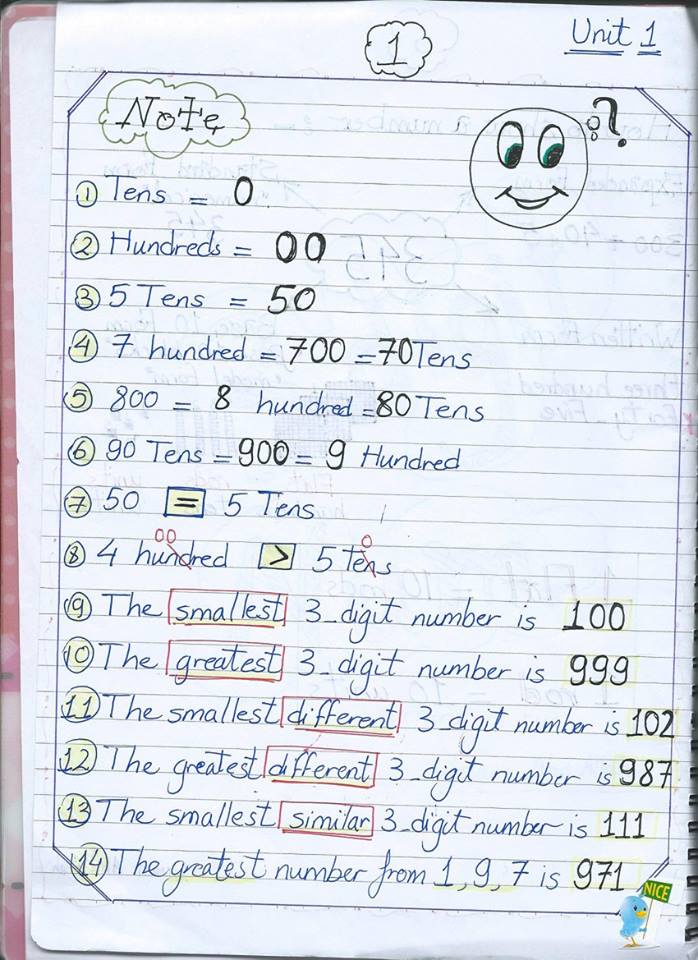 Unit 1
1
Note
?
① Tens = 0
② Hundreds = 00
③ 5 Tens = 50
④ 7 hundred = 700 = 70 Tens
⑤ 800 = 8 hundred = 80 Tens
⑥ 90 Tens = 900 = 9 Hundred
⑦ 50 = 5 Tens
00 0
⑧ 4 hundred > 5 tens
⑨ The smallest 3_digit number is 100
⑩ The greatest 3_digit number is 999
⑪ The smallest different 3_digit number is 102
⑫ The greatest different 3_digit number is 987
⑬ The smallest similar 3_digit number is 111
⑭ The greatest number from 1, 9, 7 is 971
NICE